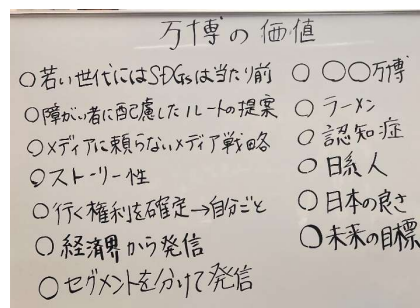 万博の価値
○若い世代にはSDGsは当たり前
○障がい者に配慮したルートの提案
○メディアに頼らないメディア戦略
○ストーリー性
○行く権利を確定→自分ごと
○経済界から発信
○セグメントを分けて発信
○ ○○万博
○ラーメン
○認知症
○日系人
○日本の良さ
○未来の目標